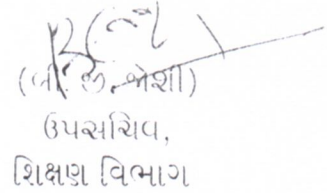 (બી. જી. જોશી)
ઉપસચિવ,
શિક્ષણ વિભાગ